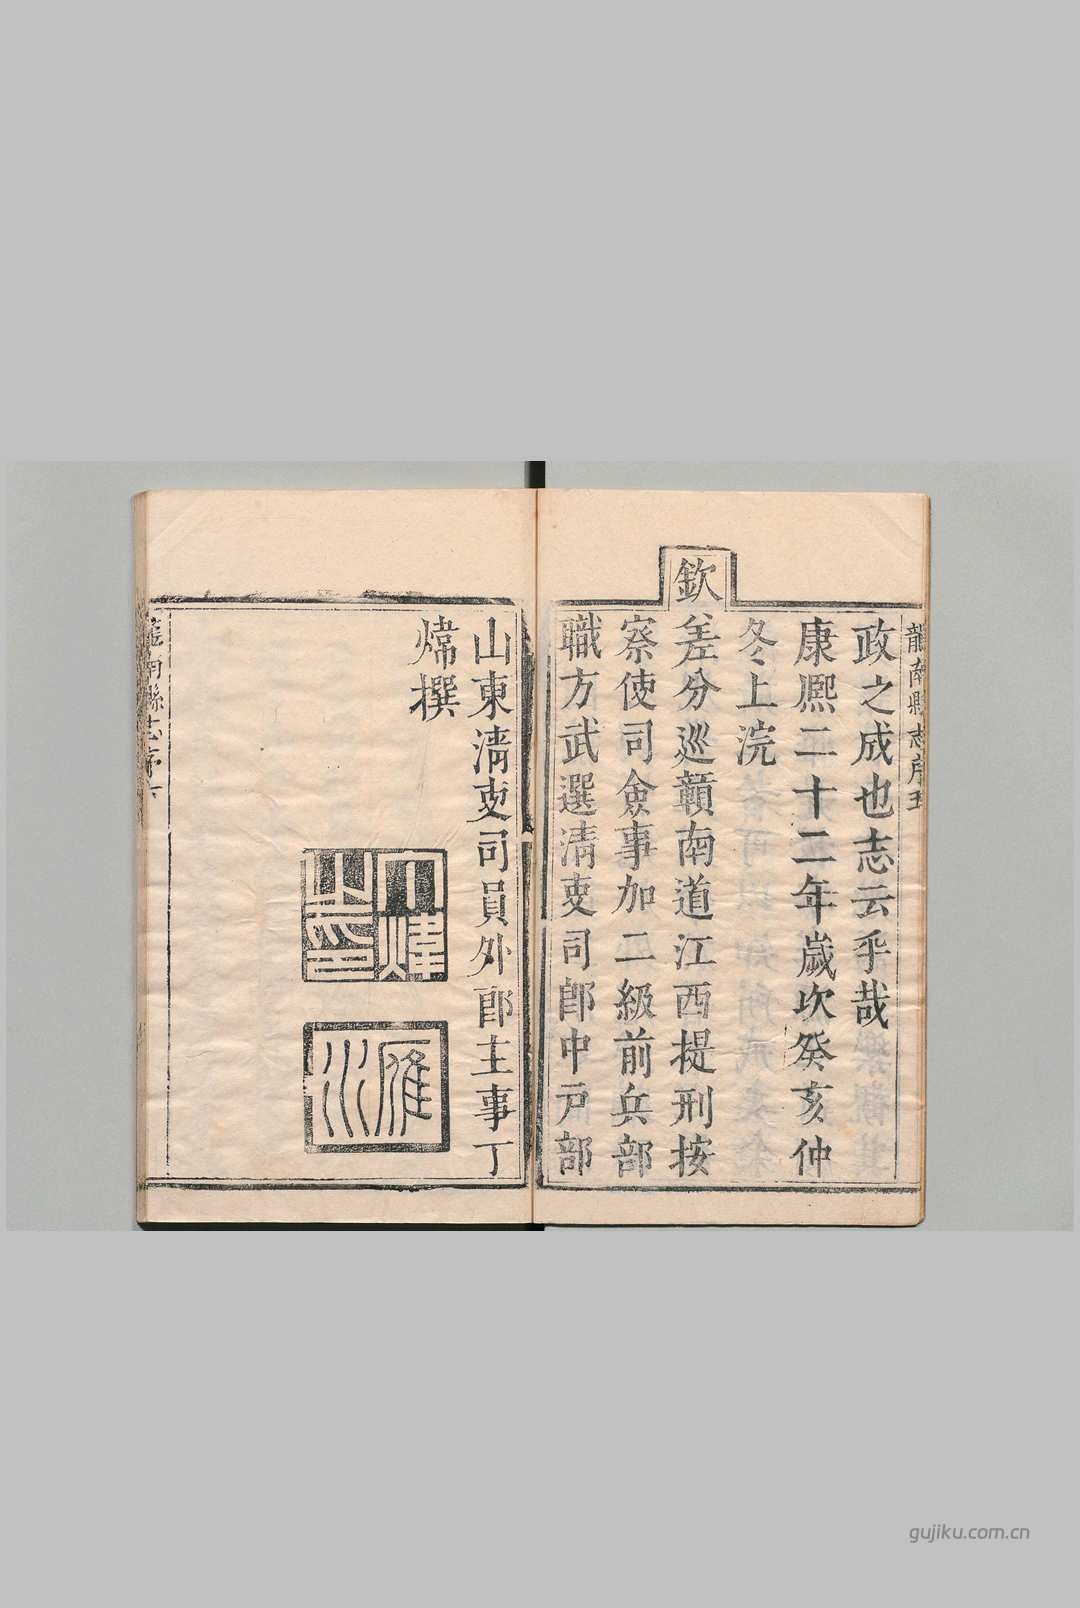 龍南縣志序五
政之成也志云乎哉
康熈二十二年歲次癸亥仲
冬上浣
欽差分巡贛南道江西提刑按
察使司僉事加二級前兵部
職方武選淸吏司郎中戸部
山東淸吏司員外郎主事丁
煒撰
丁煒之印
雁水
龍南縣志序六
gujiku.com.cn